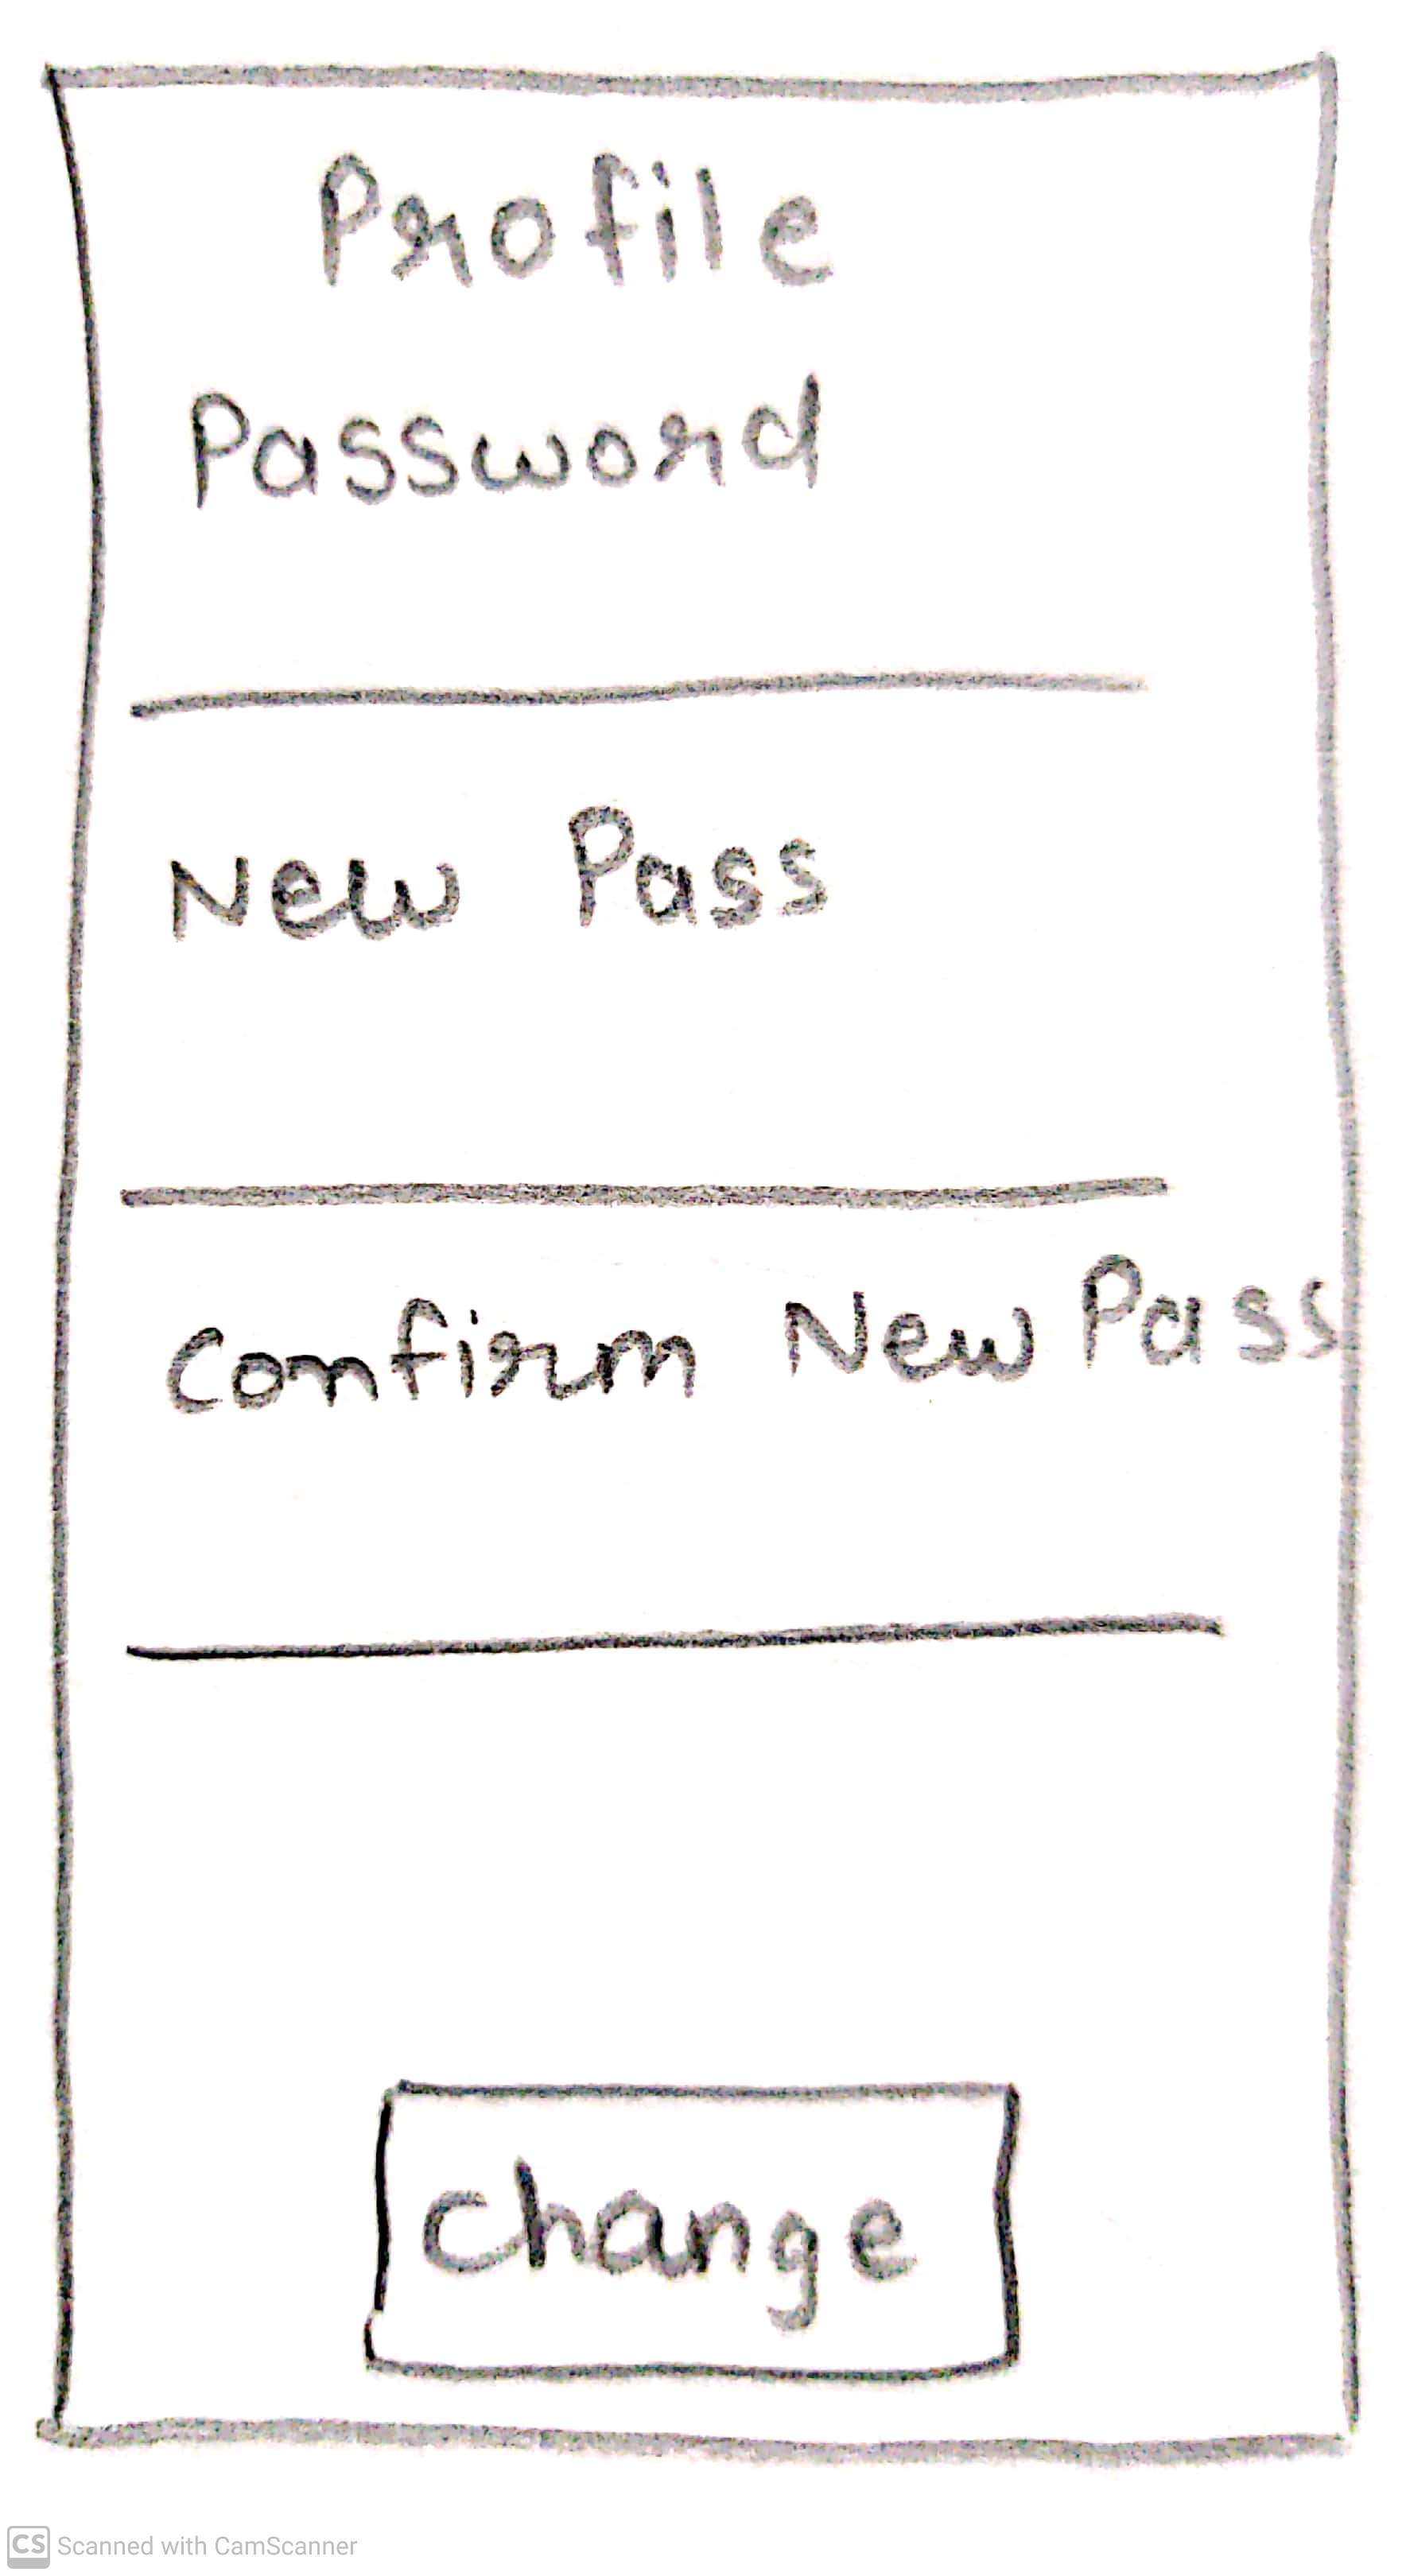 Profile
Password
New Pass
Confirm New Pass
Change
CS Scanned with CamScanner